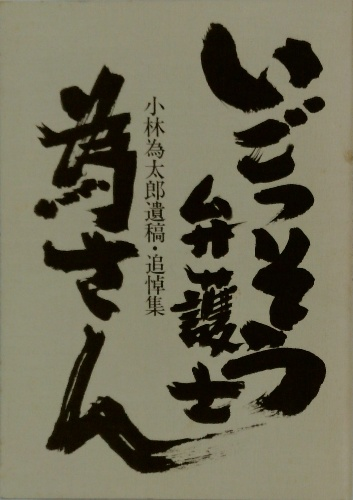 いごっそう
弁護士
為さん
小林為太郎遺稿・追悼集